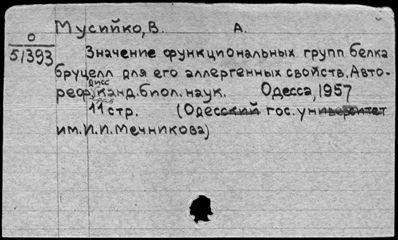 Мусийко, В. А.
О
51393
Значение функциональных групп белка
бруцелл для его аллергенных свойств. Авто-
дисс
реф. канд. биол. наук. Одесса, 1957
11 стр. (Одесский гос. университет
им. И. И. Мечникова)